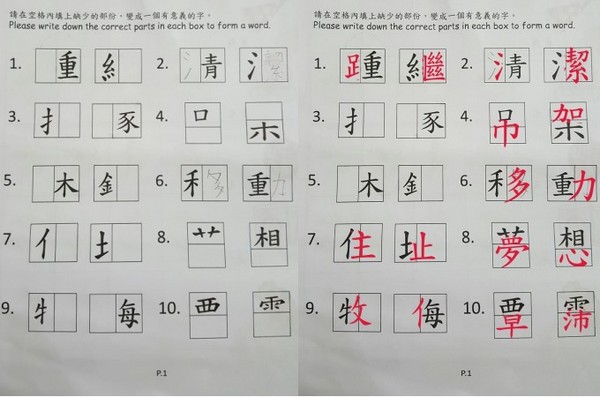 請在空格內填上缺少的部份，變成一個有意義的字。
Please write down the correct parts in each box to form a word.
1. 重 糹 2. 清 潔
3. 扌 豕 4. 口 木
5. 木 釒 6. 移 動
7. 亻 土 8. 艹 相
9. 牜 每 10. 覀 雨
P.1
請在空格內填上缺少的部份，變成一個有意義的字。
Please write down the correct parts in each box to form a word.
1. 踵 繼 2. 清 潔
3. 扌 豕 4. 吊 架
5. 木 釒 6. 移 動
7. 住 址 8. 夢 想
9. 牧 侮 10. 覃 霈
P.1